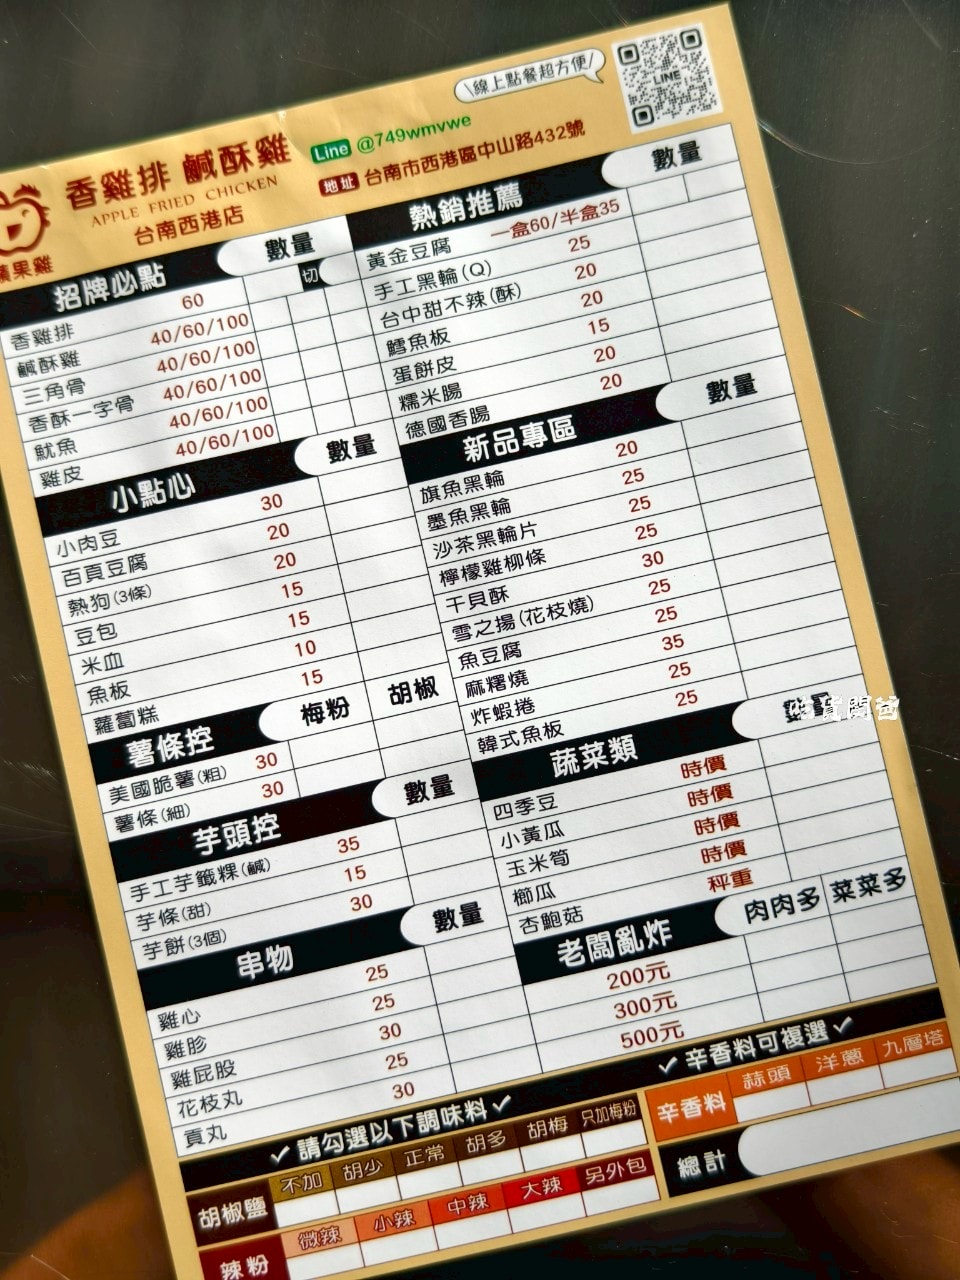 \線上點餐超方便/
LINE
Line @749wmvwe
地址 台南市西港區中山路432號
香雞排 鹹酥雞
APPLE FRIED CHICKEN
台南西港店
蘋果雞
招牌必點 數量
切
香雞排 60
鹹酥雞 40/60/100
三角骨 40/60/100
香酥一字骨 40/60/100
魷魚 40/60/100
雞皮 40/60/100
小點心 數量
小肉豆 30
百頁豆腐 20
熱狗(3條) 20
豆包 15
米血 15
魚板 10
蘿蔔糕 15
薯條控 梅粉 胡椒
美國脆薯(粗) 30
薯條(細) 30
芋頭控 數量
手工芋籤粿(鹹) 35
芋條(甜) 15
芋餅(3個) 30
串物 數量
雞心 25
雞胗 25
雞屁股 30
花枝丸 25
貢丸 30
熱銷推薦 數量
黃金豆腐 一盒60/半盒35
手工黑輪(Q) 25
台中甜不辣(酥) 20
鱈魚板 20
蛋餅皮 15
糯米腸 20
德國香腸 20
新品專區 數量
旗魚黑輪 20
墨魚黑輪 25
沙茶黑輪片 25
檸檬雞柳條 25
干貝酥 30
雪之揚(花枝燒) 25
魚豆腐 25
麻糬燒 35
炸蝦捲 25
韓式魚板 25
蔬菜類
四季豆 時價
小黃瓜 時價
玉米筍 時價
櫛瓜 時價
杏鮑菇 秤重
老闆亂炸 肉肉多 菜菜多
200元
300元
500元
✓ 請勾選以下調味料 ✓
胡椒鹽 不加 胡少 正常 胡多 胡梅 只加梅粉
辣粉 微辣 小辣 中辣 大辣 另外包
✓ 辛香料可複選 ✓
辛香料 蒜頭 洋蔥 九層塔
總計